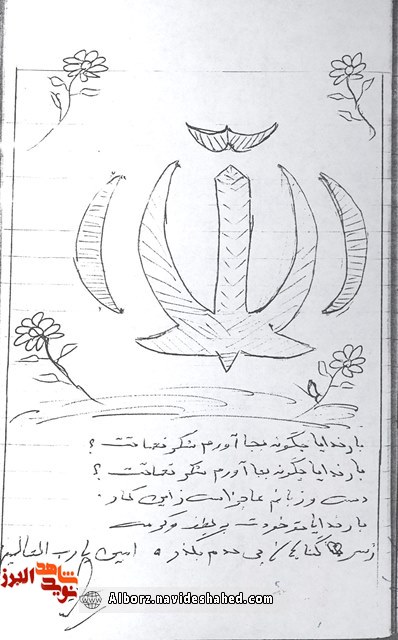 بار خدایا چگونه بجا آورم شکر نعمانت ؟
بار خدایا چگونه بجا آورم شکر نعمانت ؟
دست و زبانم عاجز است ز این کار .
بار خدایا تو خودت به لطف و کرمت
ز سر گناهان بی حدم بگذر ° امین یا رب العالمین
نوید شاهد البرز
Alborz.navideshahed.com